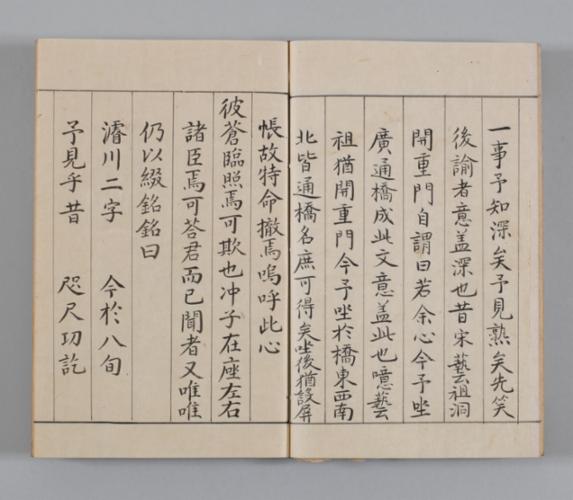 一事予知深矣予見熟矣先笑
後諭者意盖深也昔宋藝祖洞
開重門自謂曰若余心今予坐
廣通橋成此文意盖此也噫藝
祖猶開重門今予坐於橋東西南
北皆通橋名庶可得矣坐後猶設屏
帳故特命撤焉嗚呼此心
彼蒼臨照焉可欺也冲子在座左右
諸臣焉可荅君而已聞者又唯唯
仍以綴銘銘曰
濬川二字 今於八旬
予見乎昔 咫尺功訖